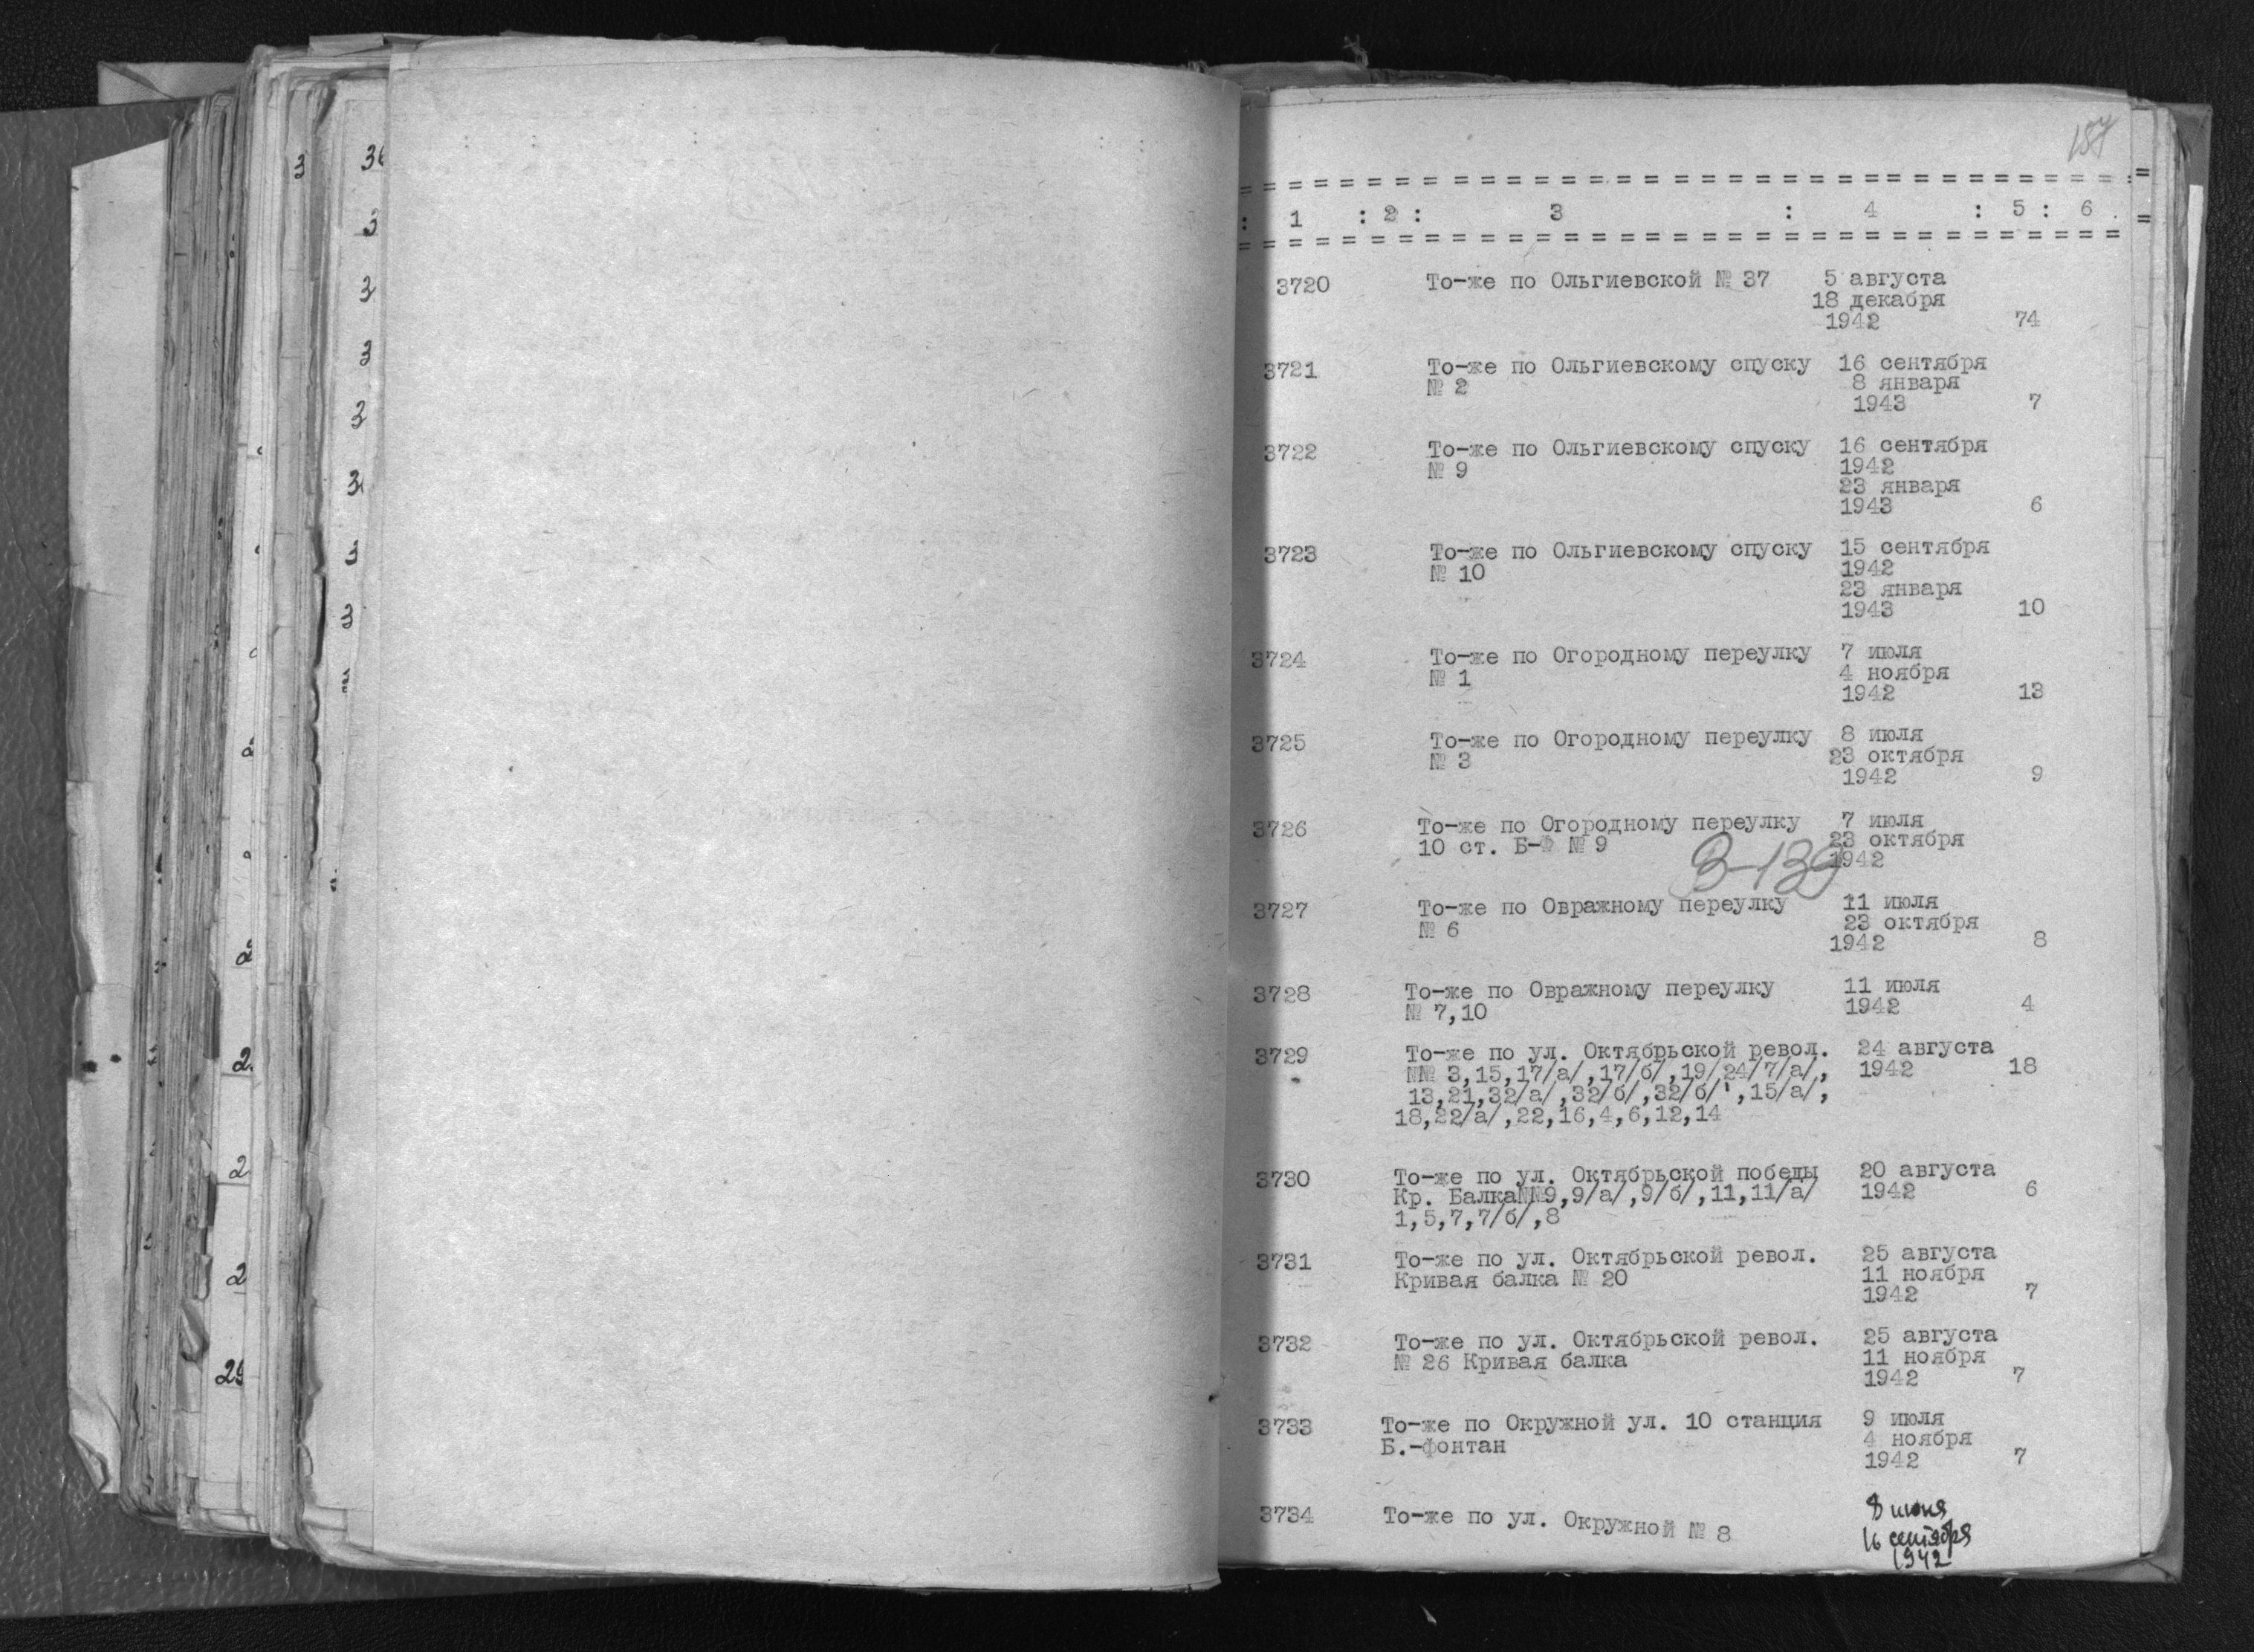 187
: 1 : 2 : 3 : 4 : 5 : 6
3720 То-же по Ольгиевской № 37 5 августа
18 декабря
1942 74
3721 То-же по Ольгиевскому спуску 16 сентября
№ 2 8 января
1943 7
3722 То-же по Ольгиевскому спуску 16 сентября
№ 9 1942
23 января
1943 6
3723 То-же по Ольгиевскому спуску 15 сентября
№ 10 1942
23 января
1943 10
3724 То-же по Огородному переулку 7 июля
№ 1 4 ноября
1942 13
3725 То-же по Огородному переулку 8 июля
№ 3 23 октября
1942 9
3726 То-же по Огородному переулку 7 июля
10 ст. Б-Ф № 9 23 октября
3-139 1942
3727 То-же по Овражному переулку 11 июля
№ 6 23 октября
1942 8
3728 То-же по Овражному переулку 11 июля
№ 7,10 1942 4
3729 То-же по ул. Октябрьской револ. 24 августа
№№ 3,15,17/а/,17/б/,19/24/7/а/, 1942 18
13,21,32/а/,32/б/,32/б/',15/а/,
18,22/а/,22,16,4,6,12,14
3730 То-же по ул. Октябрьской победы 20 августа
Кр. Балка№№9,9/а/,9/б/,11,11/а/ 1942 6
1,5,7,7/б/,8
3731 То-же по ул. Октябрьской револ. 25 августа
Кривая балка № 20 11 ноября
1942 7
3732 То-же по ул. Октябрьской револ. 25 августа
№ 26 Кривая балка 11 ноября
1942 7
3733 То-же по Окружной ул. 10 станция 9 июля
Б.-фонтан 4 ноября
1942 7
3734 То-же по ул. Окружной № 8 8 июня
16 сентября
1942